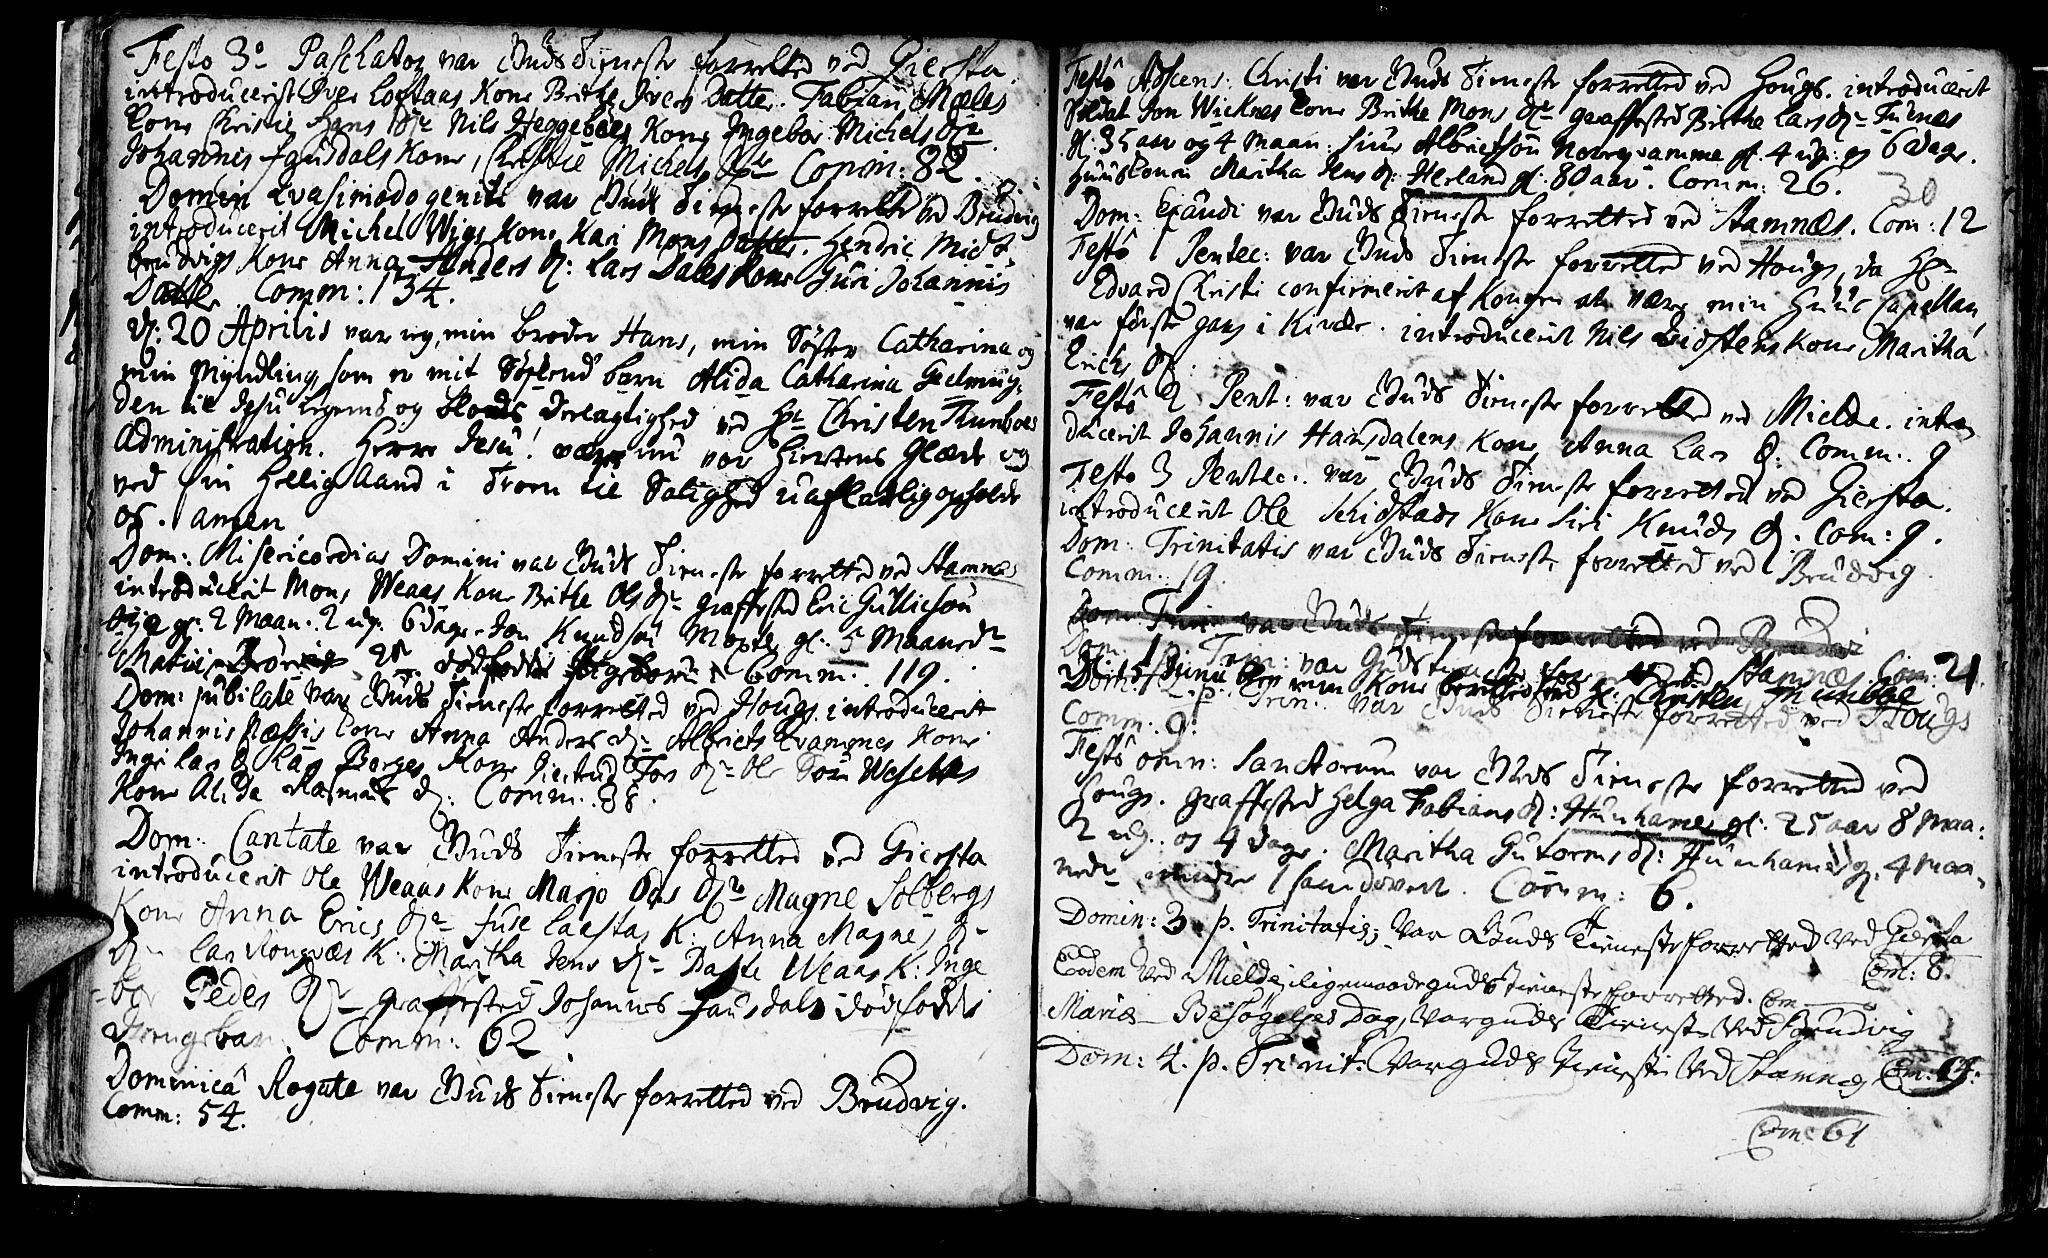 Festo 3º Paschatos var Guds Tieneste forretted ved Giersta.
introducerit Iver Loftaas Kone Brithe Ivers Datter. Fabian Mæles
Kone Christi Hans dr Nils Heggebøes Kone Ingebor Michels dr
Johannis Fausdals Kone, Christie Michels dr Comm: 82.
Domin Qvasimodogeniti var Guds Tieneste forretted ved Brudvig
introducerit Michel Wigs Kone Kari Mons Datter. Hendric Midt
brudvigs Kone Anna Anders d: Lars Dales Kone Guri Johannis
Datter. Comm: 134.
d: 20 Aprilis var ieg, min broder Hans, min Søster Catharina og
min Myndling, som er mit Søskend barn Alida Catharina Geelmuy,
den til Jesu legems og blods deelagtighed ved Hr Christen Munboes
Administration. Herre Jesu! være nu vor Hiertens Glæde og
ved sin Hellig Aand i Troen til Salighed uafladelig opholde
os. amen
Dom: Misericordias Domini var Guds Tieneste forretted ved Stamnes
introducerit Mons Weaas Kone Brithe Ols dr graffested Eric Gullicsøn
gl: 2 Maan: 2 ug: 6 dage. Jon Knudsøn Mostr gl: 5 Maaneder
dødfødde Comm: 119.
Dom: jubilate var Guds Tieneste forretted ved Hougs. introducerit
Johannis Kone Anna Anders dr Albricts Qvammes Kone
Inge Lars d Lars Borges Kone Giertrud Tors dr Ole Wesetes
Kone Alida Rasmus d: Comm: 88.
Dom: Cantate var Guds Tieneste forretted ved Giersta
introducerit Ole Weaas Kone Marjo Ols dr Magne Solbergs
Kone Anna Erics dr Fuse Laastas K: Anna Magnes d-
dr Lars Rongvæs K: Maritha Jens dr Weaas K: Inge
-bor Peders dr graffested Johannes Fausdals dødfødde
drengebarn. Comm: 62
Dominica Rogate var Guds Tieneste forretted ved Brudvig.
Comm: 54.
Festo Adscens: Christi var Guds Tieneste forretted ved Hougs. introducerit
Soldat Jon Wicknes Kone Brithe Mons dr graffested Brithe Lars dr Furnes
gl: 35 aar og 4 Maan: Siur Albrictsøn Norqvamme gl. 4 ug: og 6 dage.
Huuskonen Maritha Jens d: Herland gl: 80 aar. Comm: 26. 30
Dom: Exaudi var Guds Tieneste forretted ved Stamnæs. Com: 12
Festo 1 Pentec: var Guds Tieneste forretted ved Hougs, da Hr
Edvard Christi confirmerit af Kongen at være min Huus Capellan
var første gang i Kircke. introducerit Nils Kone Maritha
Erichs dr.
Festo 2 Pent: var Guds Tieneste forretted ved Mielde. intro
ducerit Johannis Hansdalens Kone, Anna Lars d: Comm: 9
Festo 3 Pentec: var Guds Tieneste forretted ved Giersta.
introducerit Ole Skidstads Kone Siri Knuds d. Com: 9.
Dom: Trinitatis var Guds Tieneste forretted ved Brudvig
Comm: 19.
Dom: Trin: var Guds Tieneste forretted ved
Dom: 1 p. Trin: var Guds tieneste ved Stamnæs. Com: 21.
min Kone berettet ved Hr Christen Munboe
Dom: 2 p. Trin: var Guds Tieneste forretted ved Hougs
Comm: 9.
Festo omn: Sanctorum var Guds Tieneste forretted ved
Hougs. graffested Helga Fabians d: Hunhamer gl: 25 aar 8 maa:
2 ug: og 4 dage. Maritha Gutorms d: Hunhamer gl. 4 maa,
neder mindre Comm: 6.
Domin: 3. p. Trinitatis; Var Guds Tieneste forretted ved Giersta
Com: 8.
Eodem ved Mielde iligemaade guds tieneste forretted. Com
Mariæ Besøgelses Dag, Var guds Tieneste ved Brudvig
Dom: 4. p. Trinit: Var guds tieneste ved Stamnes Com: 19:
Com: 61